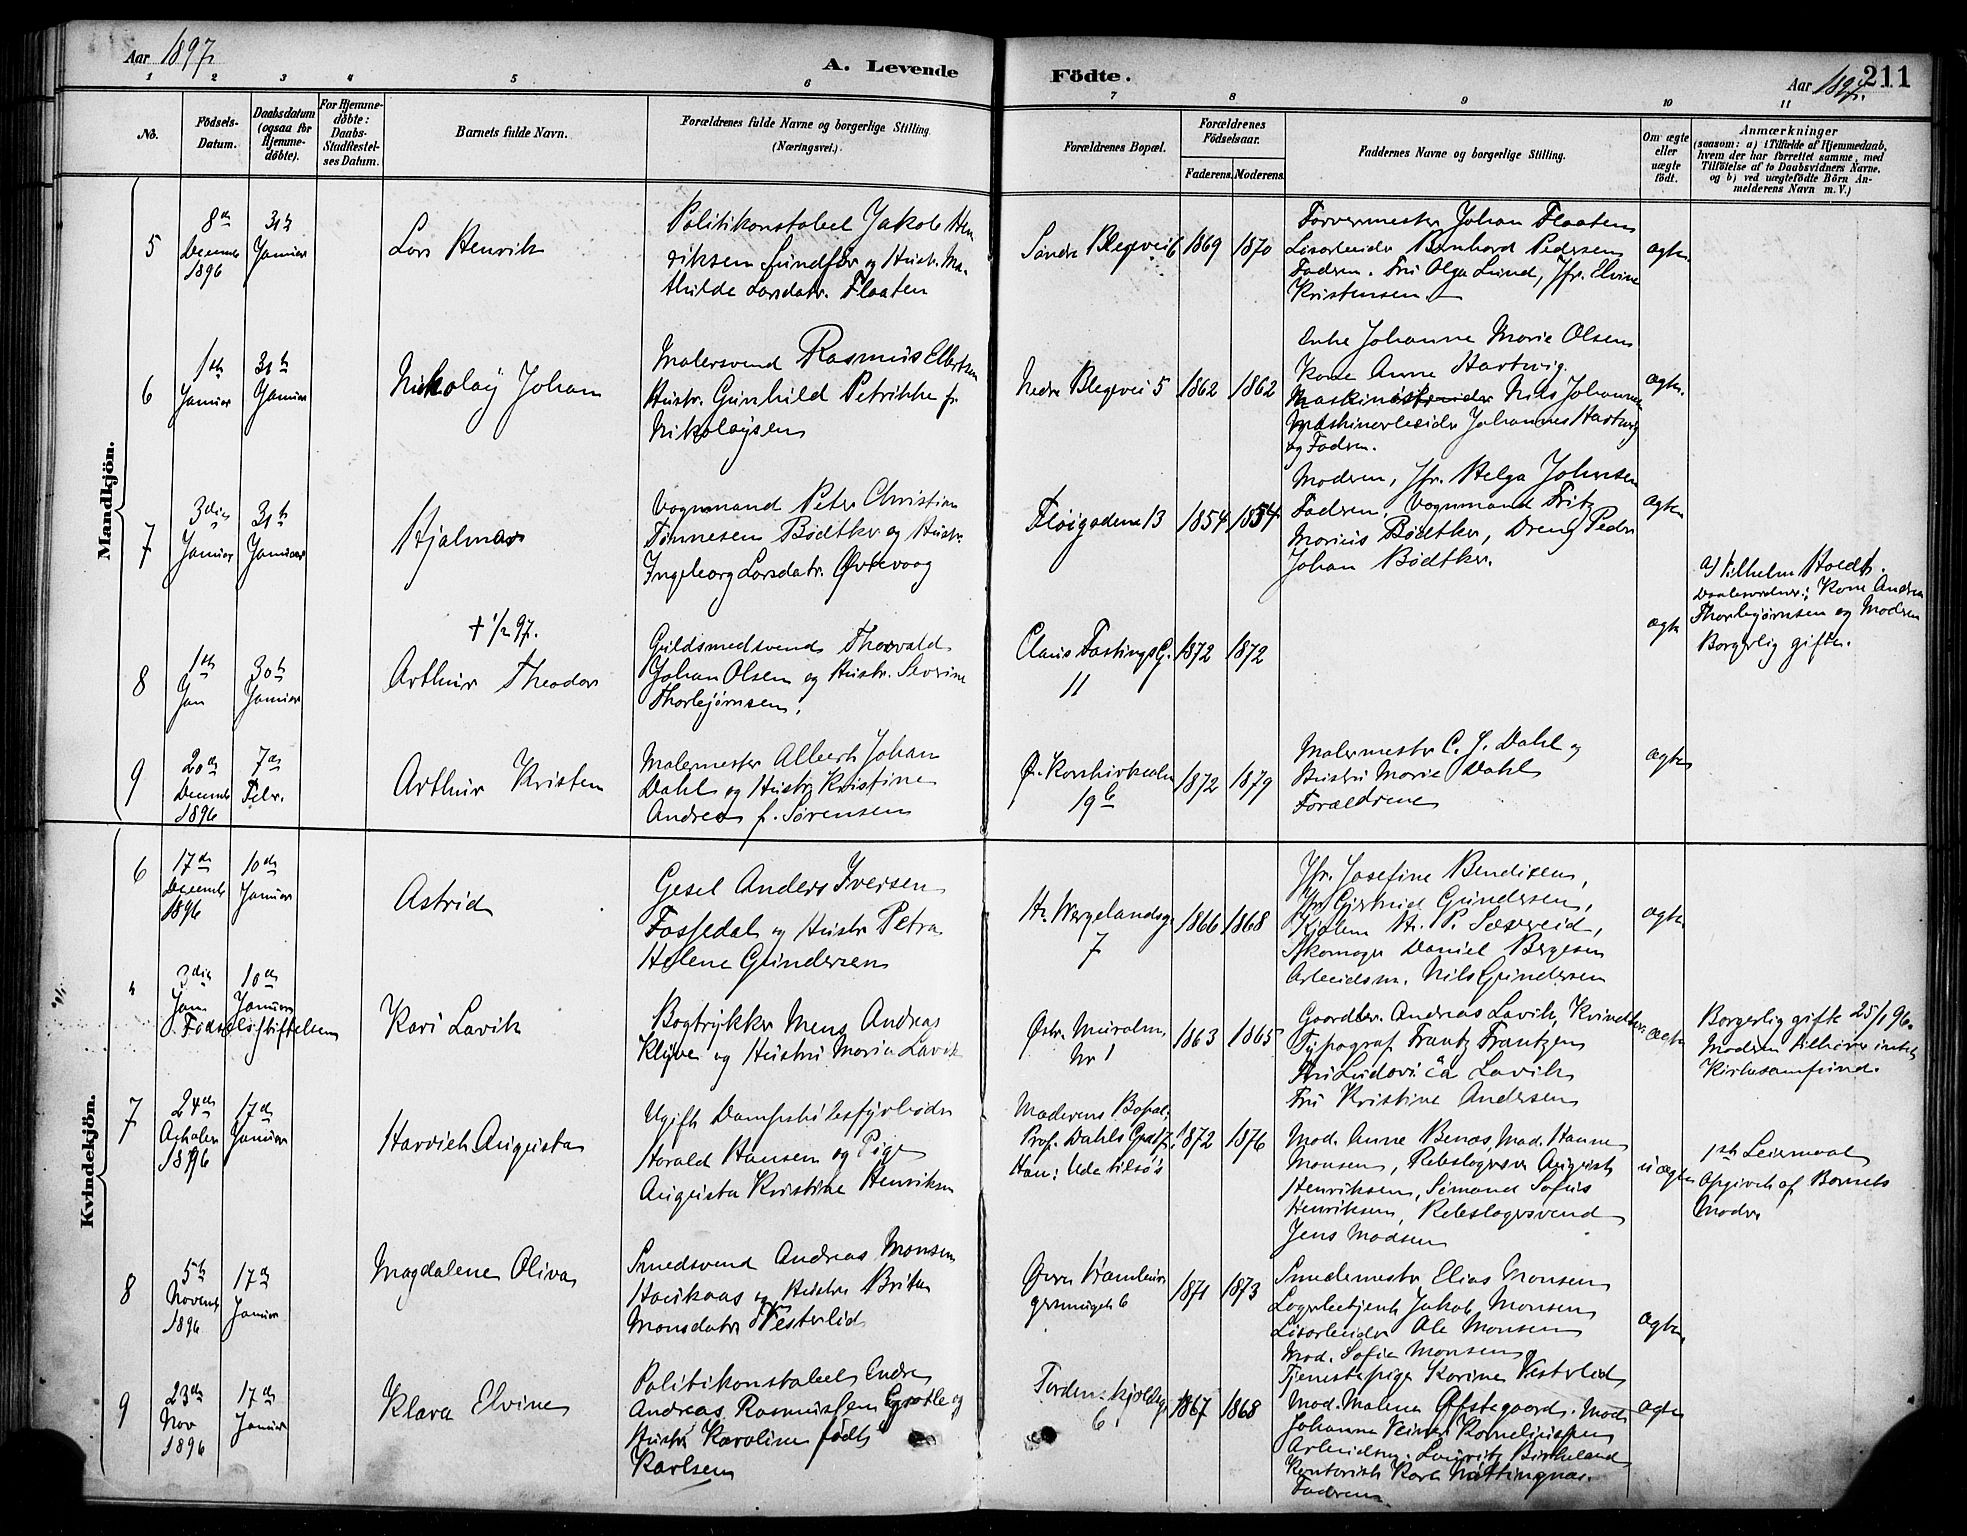 Aar 1897.
A. Levende
Födte.
Aar 1897.
211
1 2 3 4 5 6
7 8 9 10 11
No.
Födsels-
Datum.
Daabsdatum
(ogsaa for
Hjemme-
döbte).
For Hjemme-
döbte:
Daabs-
Stadfæstel-
ses Datum.
Barnets fulde Navn.
Forældrenes fulde Navne og borgerlige Stilling.
(Næringsvei.)
Forældrenes Bopæl.
Forældrenes
Födselsaar.
Faderens. Moderens.
Faddernes Navne og borgerlige Stilling.
Om ægte
eller
uægte
födt.
Anmærkninger
(saasom: a) i Tilfælde af Hjemmedaab,
hvem der har forrettet samme, med
Tilföielse af to Daabsvidners Navne,
og b) ved uægtefödte Börn An-
melderens Navn m. V.)
Mandkjön.
5
8de
Decembr
1896
31te
Januar
Lars Henrik
Politikonstabel Jakob Hen
riksen Sundfør og Hustr. Ma-
thilde Larsdatr. Flaaten
Søndre Blegevei 6
1869
1870
Farvermester Johan Flaaten
Lisarbeider Bernhard Pedersen
Faderen. Fru Olga Lund, Jfr. Elvine
Kristensen
ægte.
6
1ste
Januar
31te
Januar
Nikolay Johan
Malersvend Rasmus Ellertsen
Hustr. Gunhild Petrikke f.
Nikolaysen
Nedre Blegevei 5
1862
1862
Enke Johanne Marie Olsen
Kone Anne Hartvig.
Nils Johannesen
Maskinarbeider Johannes Hartvig
og Faderen.
ægte.
7
3die
Januar
31te
Januar
Hjalmar
Vognmand Peter Christian
Tønnesen Bødtker og Hustr.
Ingeborg Larsdatr. Øvrevaag
Fløigadene 13
1854
1854
Moderen, Jfr. Helga Johnsen
Faderen, Vognmand Fritz
Marius Bødtker, Dreng Peder
Johan Bødtker.
ægte
8
1ste
Jan
30te
Januar
† 1/2 97.
Arthur Theodor
Guldsmedsvend Thorvald
Johan Olsen og Hustr. Severine
Thorbjørnsen.
Claus Fastings G.
11
1872
1872
ægte
af Vilhelm Hoedt.
Daabsvidner: Kone Andrea
Thorbjørnsen og Modren
Borgerlig gifte.
9
20de
Decembr
1896
7de
Febr.
Arthur Kristen
Malermester Albert Johan
Dahl og Hustr. Kristine
Andrea f. Sørensen
Ø. Korskirkealm
19b
1872
1879
Malermester C. J. Dahl og
Hustru Marie Dahl
Forældrene
ægte
Kvindekjön.
6
17de
Decembr
1896
10de
Januar
Astrid
Gesel Anders Iversen
Fossedal og Hustr. Petra
Helene Gundersen
Hr. Wergelandsg.
7
1866
1868
Jfr. Josefine Bendixen,
Jfr. Gjertrud Gundersen,
H. P. Sæbereid,
Skomager Daniel Bergesen
Arbeidsm. Nils Gundersen
ægte.
3die
Jan.
10de
Januar
Fødselsstiftelsen
Kari Lavik
Bogtrykker Mens Andreas
Klyve og Hustru Maria Lavik
Østr. Muralm.
Nr 1
1863
1865
Gaardbr. Andreas Lavik,
Typograf Frantz Frantzen
Fru Ludovica Lavik
Fru Kristine Andersen
ægte
Borgerlig gifte 25/1 96.
Modren tilhører intet
Kirkesamfund.
7
24de
1896
17de
Januar
Harvich Augusta
Ugift Dampskibsfyrbøder
Harald Hansen og Pige
Augusta Kristine Henriksen
Moderens Bopæl:
Prof. Dahls Gade 7.
Han: Ude tilsøs
1872
1876
Mad. Anne Benas, Mad. Hanne
Monsen, Rebslagersv August
Henriksen, Sømand Sofus
Henriksen, Rebslagersvend
Jens Madsen
uægte
1ste Leiermaal
Opgivet af Barnets
Moder
8
5te
Novemb
1896
17de
Januar
Magdalene Oliva
Smedsvend Andreas Monsen
Haukaas og Hustr. Brita
Monsdatr. Vesterlid
6
1871
1873
Smedemestr. Elias Monsen
Lagerbetjent Jakob Monsen
Lisarbeider Ole Monsen
Mad. Sofie Monsen
Tjenestepige Karine Vesterlid
ægte.
9
23de
Nov
1896
17de
Januar
Klara Elvine
Politikonstabel Endre
Andreas Rasmussen Grotle og
Hustr. Karoline født
Karlsen
Tordenskjoldsg.
6
1867
1868
Mad. Malene Østegaard. Mad.
Johanne Korneliussen
Arbeidsm. Lauritz Birkeland
Kontorist Karl Nattingnæs.
Faderen.
ægte